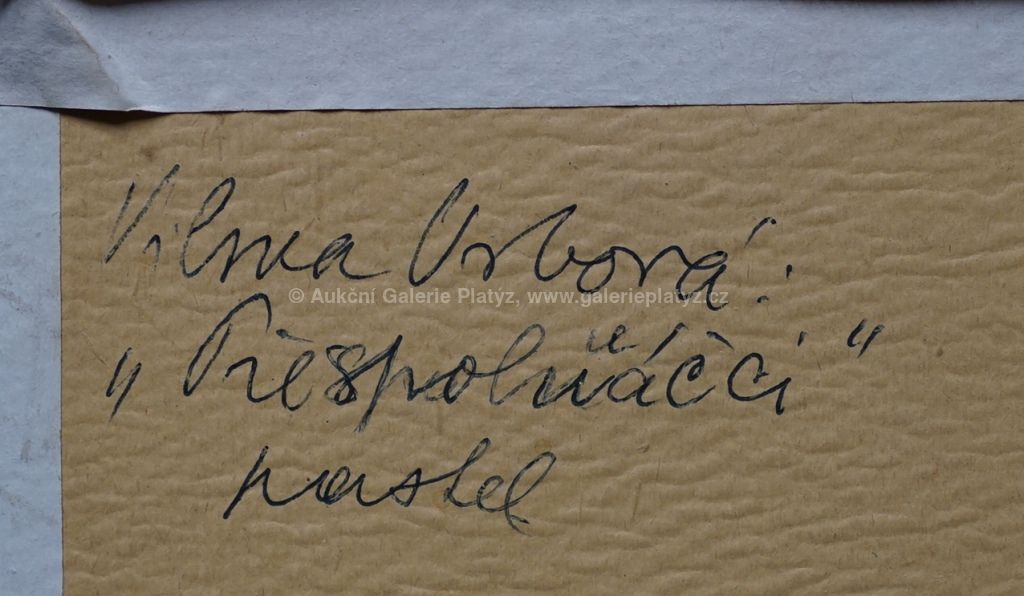 Vilma Vrbová:
© Aukční Galerie Platýz, www.galerieplatyz.cz
„Přespolňáčci“
pastel